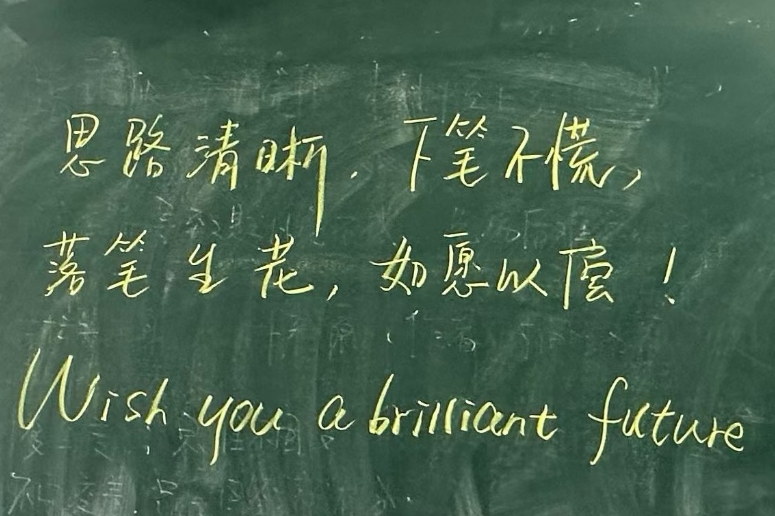 思路清晰，下笔不慌，
落笔生花，如愿以偿！
Wish you a brilliant future